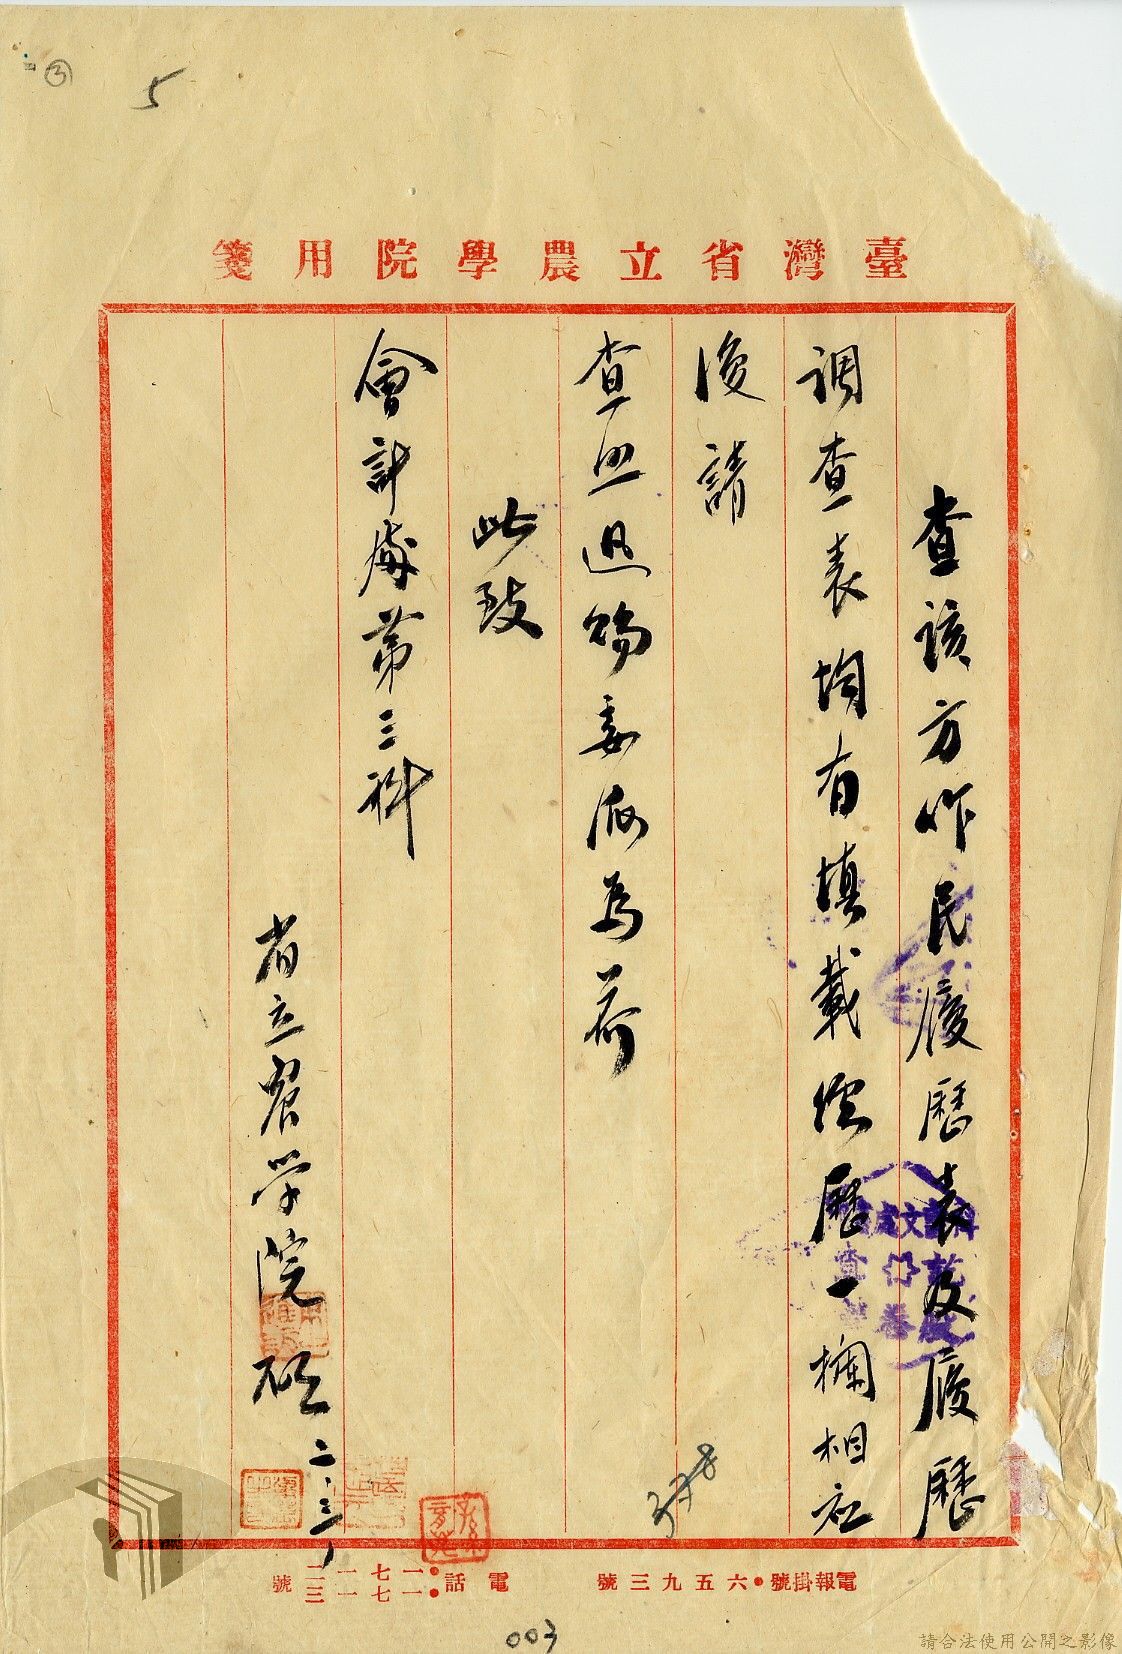 ③
5
臺灣省立農學院用箋
查該方作民履歷表及履歷
調查表均有填載經歷一欄相應
復請
查照迅賜委派為荷
此致
會計處第三科
省立農学院啟二、三、
電報掛號•六五九三號
電話•一七一二
•一七一三號
003
請合法使用公開之影像